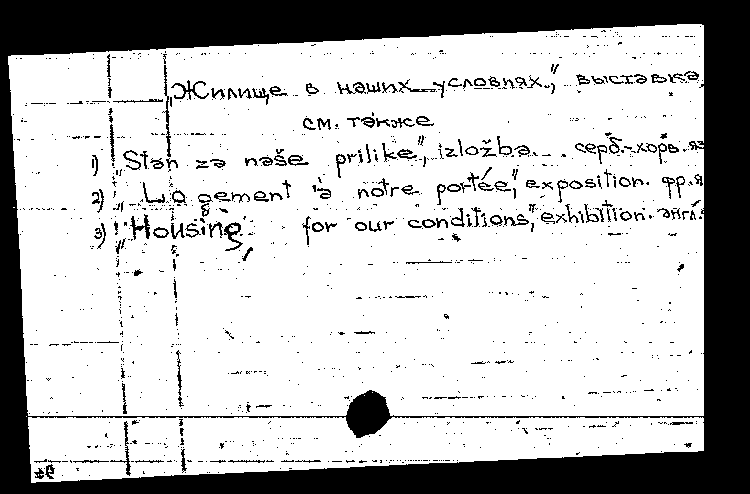 „Жилище в наших условиях", выставка
см. также
1) „Stan za naše prilike", izložba. серб.-хорв. яз
2) „Logement à notre portée", exposition. фр. я
3) „Housing for our conditions", exhibition. англ.